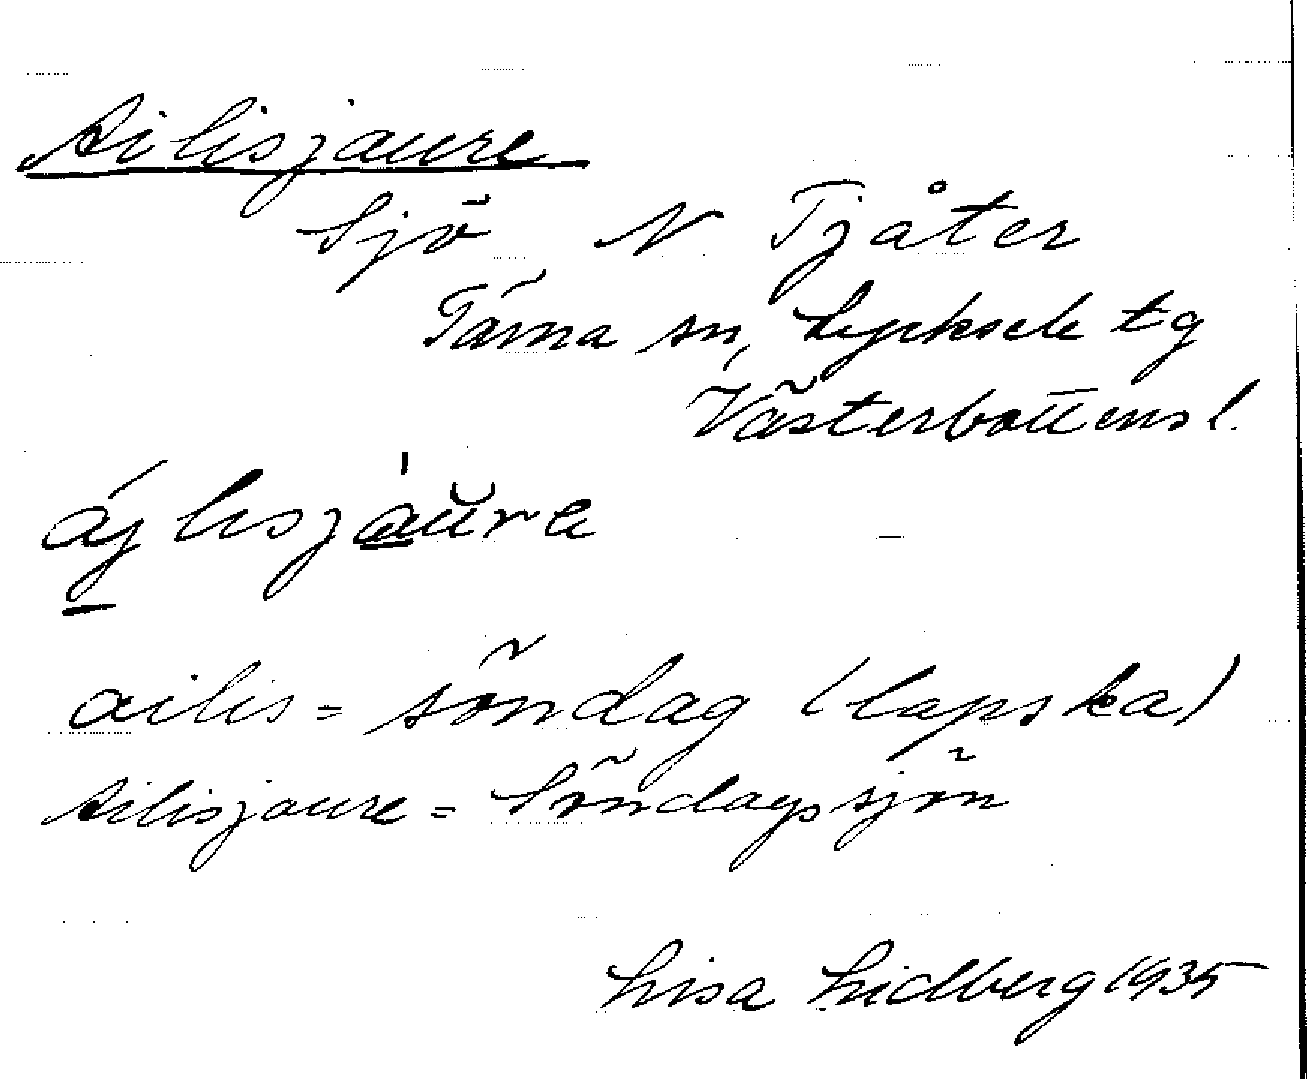 Ailisjaure
Sjö N. Tjåter
Tärna sn, Lycksele tg
Västerbottens l.
áj lisjàu̯re
ailis = söndag (lapska)
Ailisjaure = Söndagssjön
Lisa Lidberg 1935